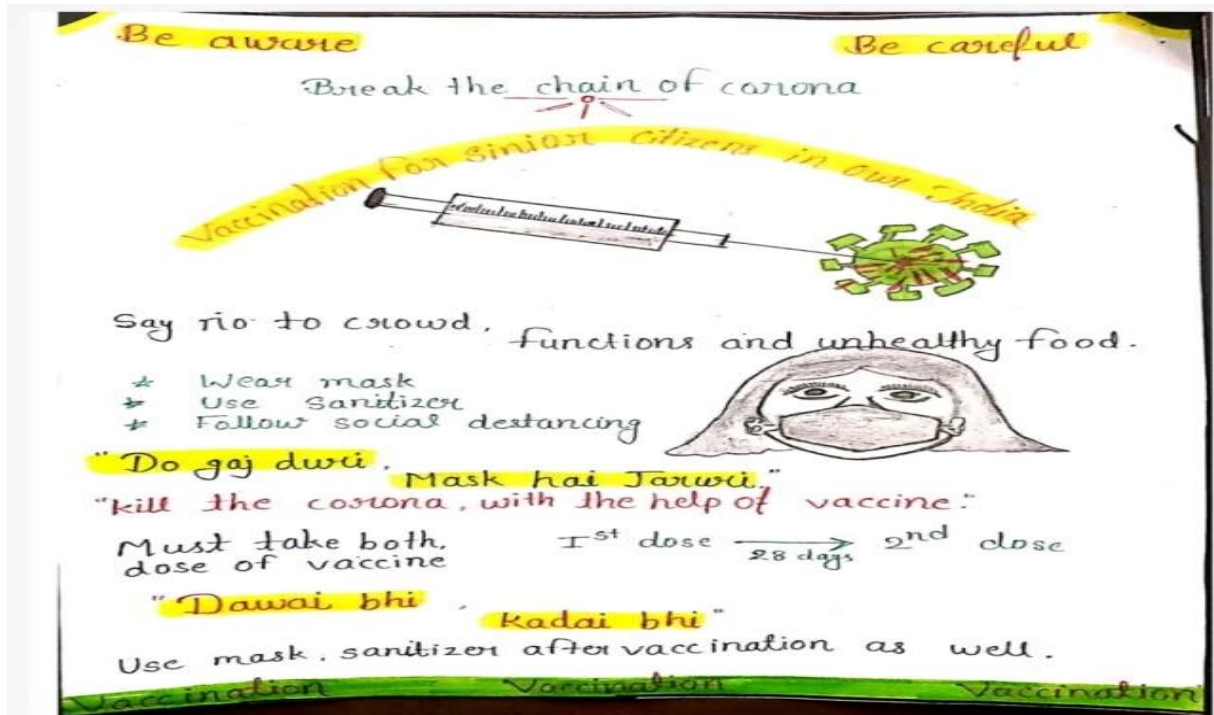 Be aware
Be careful
Break the chain of corona
Vaccination for sinior citizens in our India
Say no to crowd, functions and unhealthy food.
* Wear mask
* Use sanitizer
* Follow social destancing
"Do gaj duri, Mask hai Jaruri,"
"kill the corona, with the help of vaccine."
Must take both,
dose of vaccine
Ist dose → 2nd dose
28 days
"Dawai bhi, kadai bhi"
Use mask, sanitizer after vaccination as well.
Vaccination Vaccination Vaccination